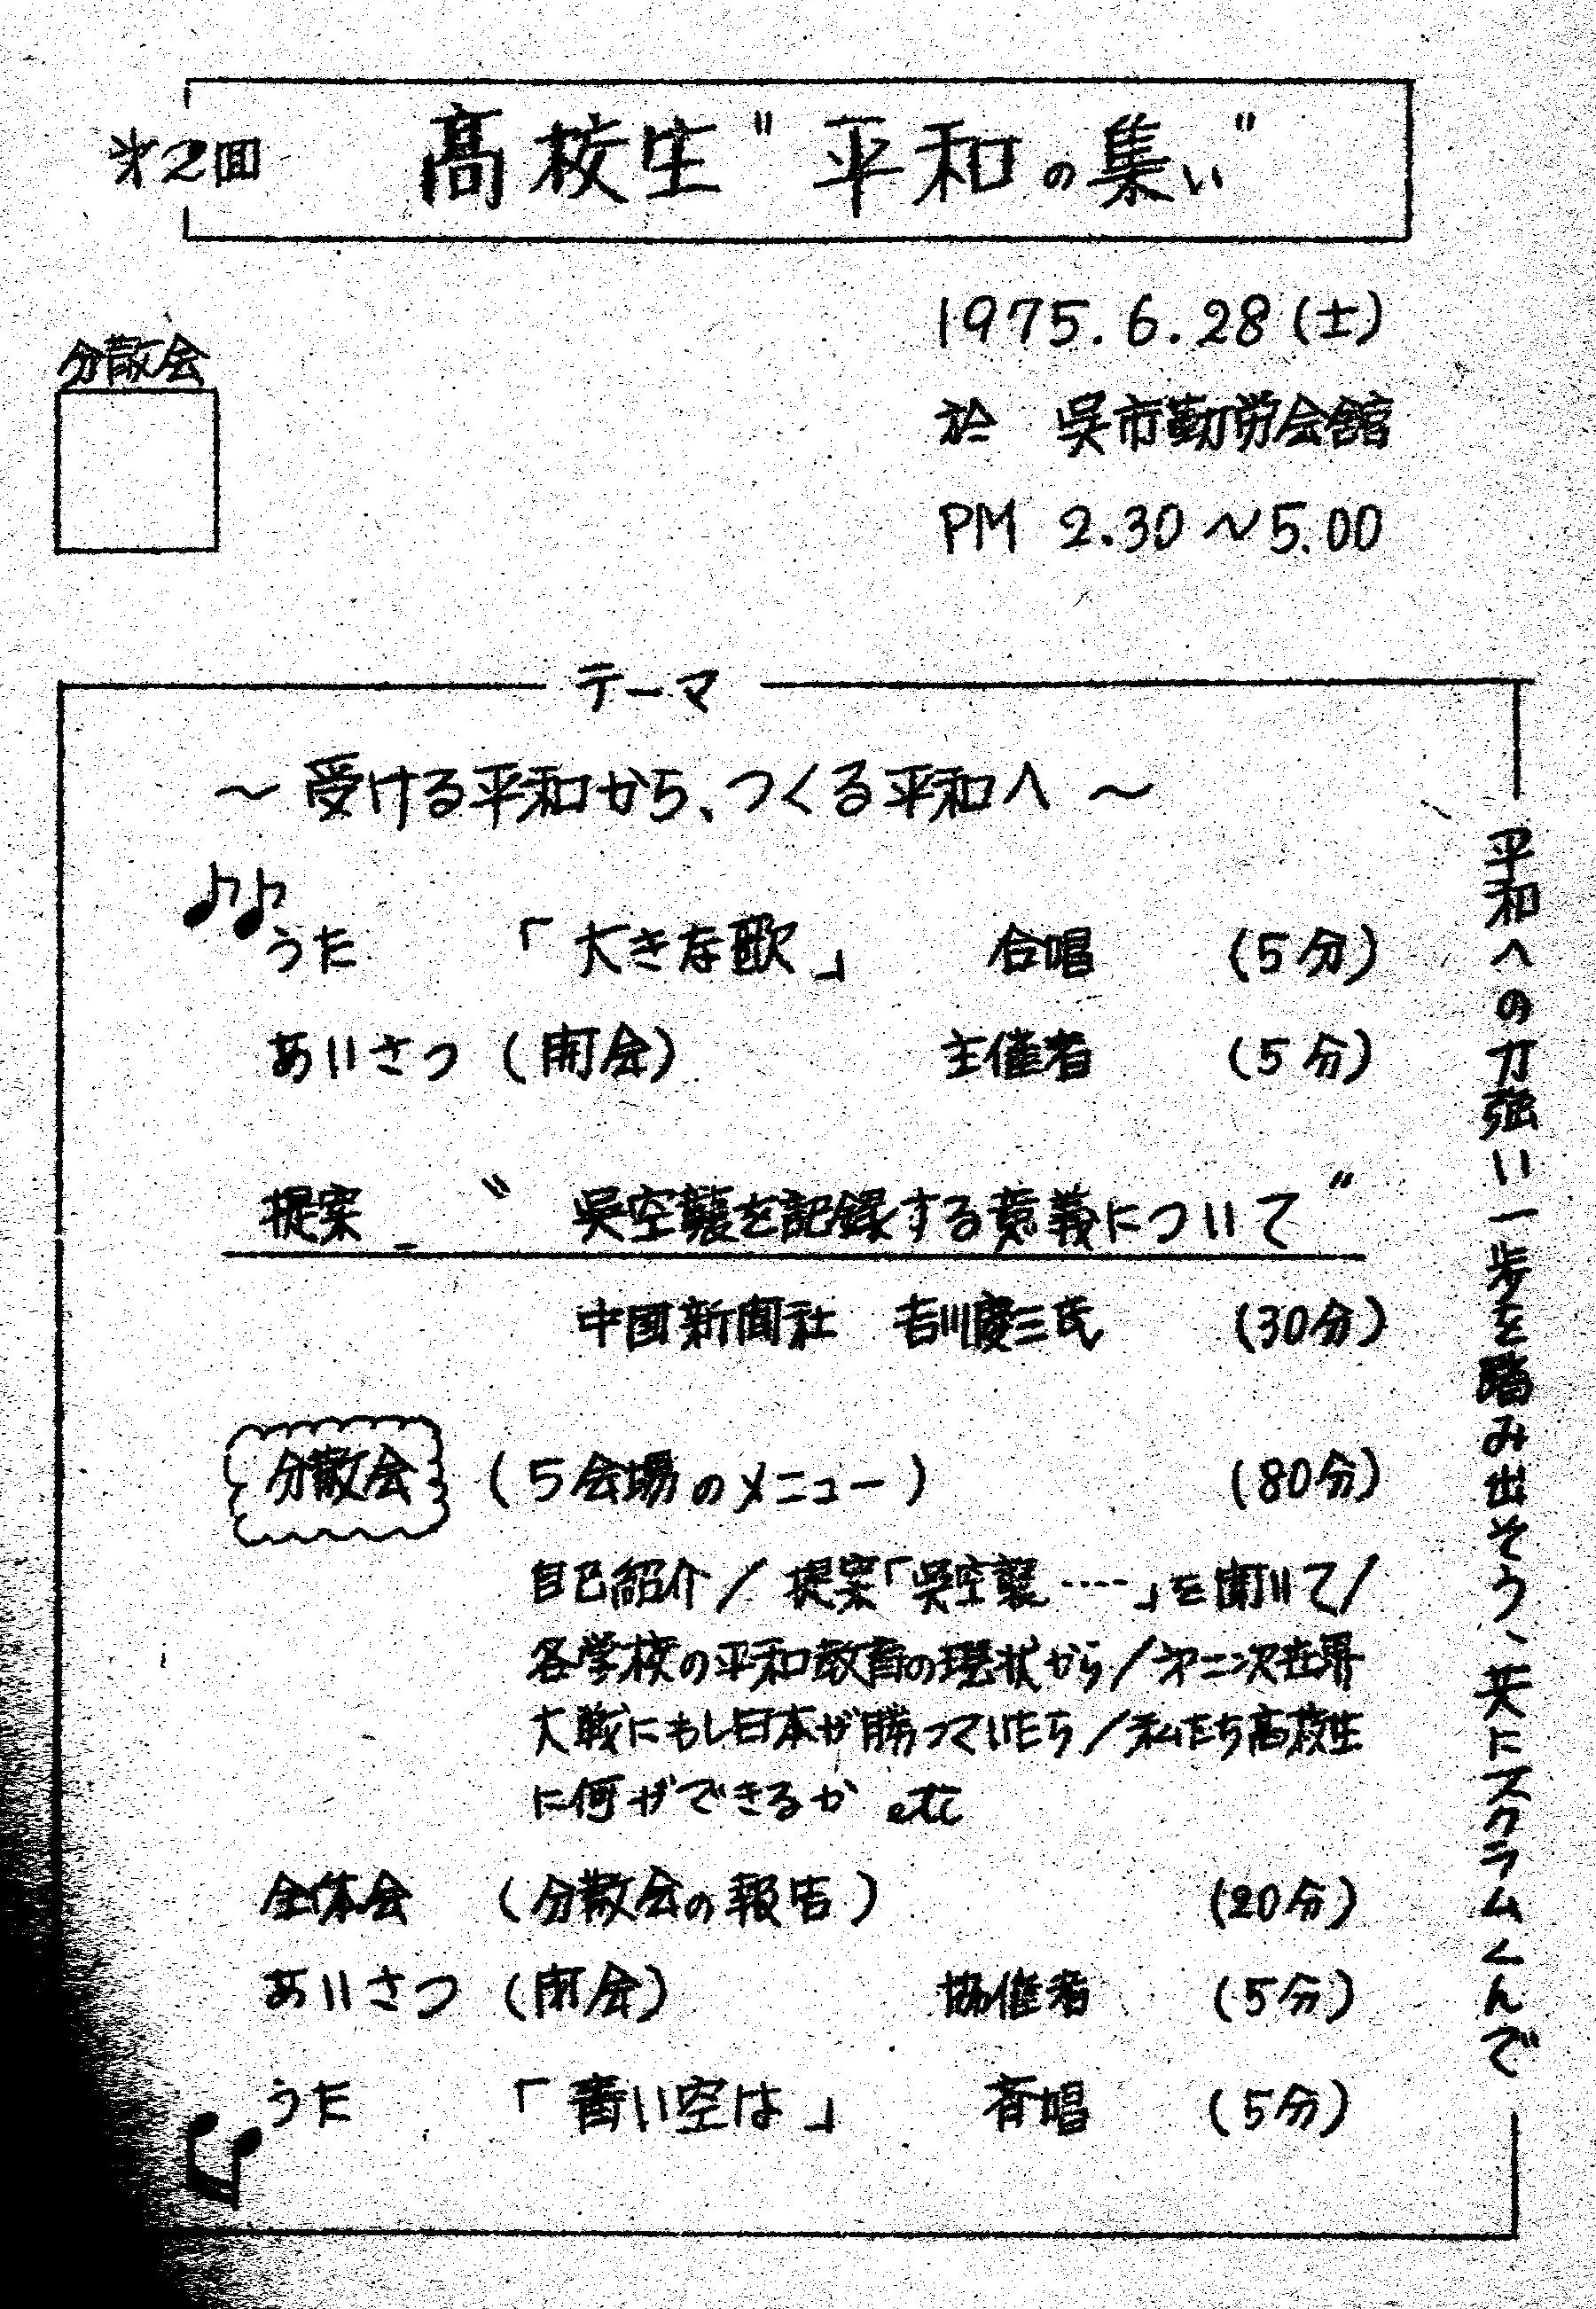 第2回 高校生"平和の集い"
1975.6.28(土)
於 呉市勤労会館
PM 2.30〜5.00
分散会
テーマ
〜受ける平和から、つくる平和へ〜
うた 「大きな歌」 合唱 (5分)
あいさつ (開会) 主催者 (5分)
提案 _ "呉空襲を記録する意義について"
中国新聞社 吉川慶三氏 (30分)
分散会 (5会場のメニュー) (80分)
自己紹介/提案「呉空襲……」を聞いて/
各学校の平和教育の現状から/第二次世界
大戦にもし日本が勝っていたら/私たち高校生
に何ができるか etc
全体会 (分散会の報告) (20分)
あいさつ (閉会) 協催者 (5分)
うた 「青い空は」 斉唱 (5分)
平和への力強い一歩を踏み出そう、共にスクラムくんで